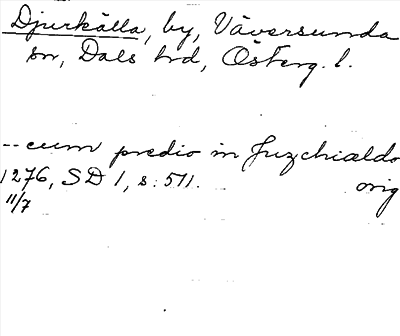 Djurkälla, by, Väversunda
sn, Dals hd, Österg. l.
-- cum predio in Juzchialdo
1276, SD 1, s. 511. orig
11/7